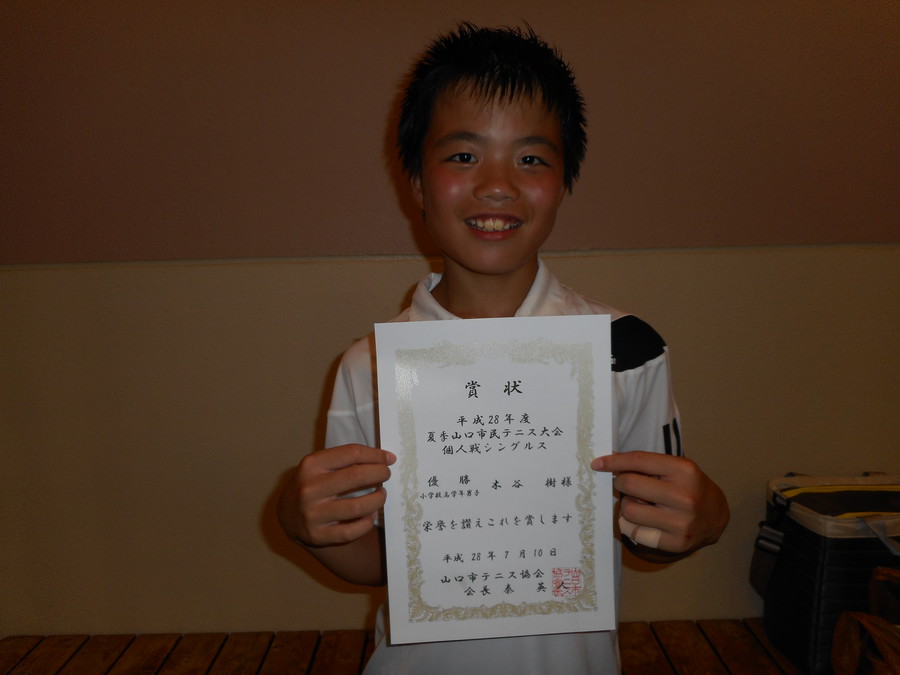 賞状
平成28年度
夏季山口市民テニス大会
個人戦シングルス
優勝 木谷 樹様
小学校高学年男子
栄誉を讃えこれを賞します
平成28年7月10日
山口市テニス協会
会長 秦 英